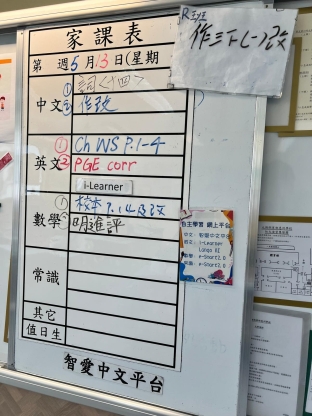 家課表
R班
作三下(一)改
第 週5月13日(星期
中文 ①詞〈十四〉
②作說
英文 ①Ch WS P.1-4
②PGE corr
i-Learner
數學 ①校本P.14及改
明進評
自主學習 網上平台
中文: 智愛中文平台
英文: i-Learner
Lango AI
數學: e-Smart2.0
常識: e-Smart2.0
常識
其它
值日生
智愛中文平台